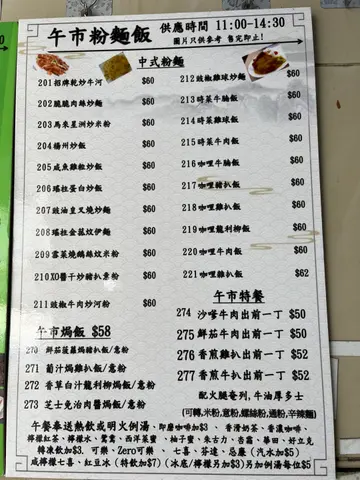 午市粉麵飯
供應時間 11:00-14:30
圖片只供參考 售完即止!
中式粉麵
201招牌乾炒牛河 $60
202脆脆肉絲炒麵 $60
203馬來星洲炒米粉 $60
204揚州炒飯 $60
205咸魚雞粒炒飯 $60
206瑤柱蛋白炒飯 $60
207豉油皇叉燒炒麵 $60
208瑤柱金菇炆伊麵 $60
209雪菜燒鵝絲炆米粉 $60
210XO醬干炒豬扒意粉 $60
211豉椒牛肉炒河粉 $60
212豉椒雞球炒麵 $60
213時菜牛腩飯 $60
214時菜雞球飯 $60
215時菜牛肉飯 $60
216咖哩牛腩飯 $60
217咖哩豬扒飯 $60
218咖哩雞扒飯 $60
219咖哩龍利柳飯 $60
220咖哩牛肉飯 $60
221咖哩雞扒飯 $62
午市焗飯 $58
270 鮮茄菠蘿焗豬扒飯/意粉
271 葡汁焗雞扒飯/意粉
272 香草白汁龍利柳焗飯/意粉
273 芝士免治肉醬焗飯/意粉
午市特餐
274 沙嗲牛肉出前一丁 $50
275 鮮茄牛肉出前一丁 $50
276 香煎雞扒出前一丁 $52
277 香煎牛扒出前一丁 $52
配火腿奄列,牛油厚多士
(可轉,米粉,意粉,螺絲粉,通粉,辛辣麵)
午餐奉送熱飲或明火例湯,即磨咖啡加$3 、香滑奶茶、香濃咖啡、
檸檬紅茶、檸水、鴛鴦、西洋菜蜜 、柚子蜜、朱古力、杏霜、華田、好立克
轉凍飲加$3. 可樂、Zero可樂 、 七喜、芬達、忌廉( 汽水加$5)
咸檸檬七喜、紅豆冰(特飲加$7)(冰底/檸檬另加$3)另加例湯每位$5